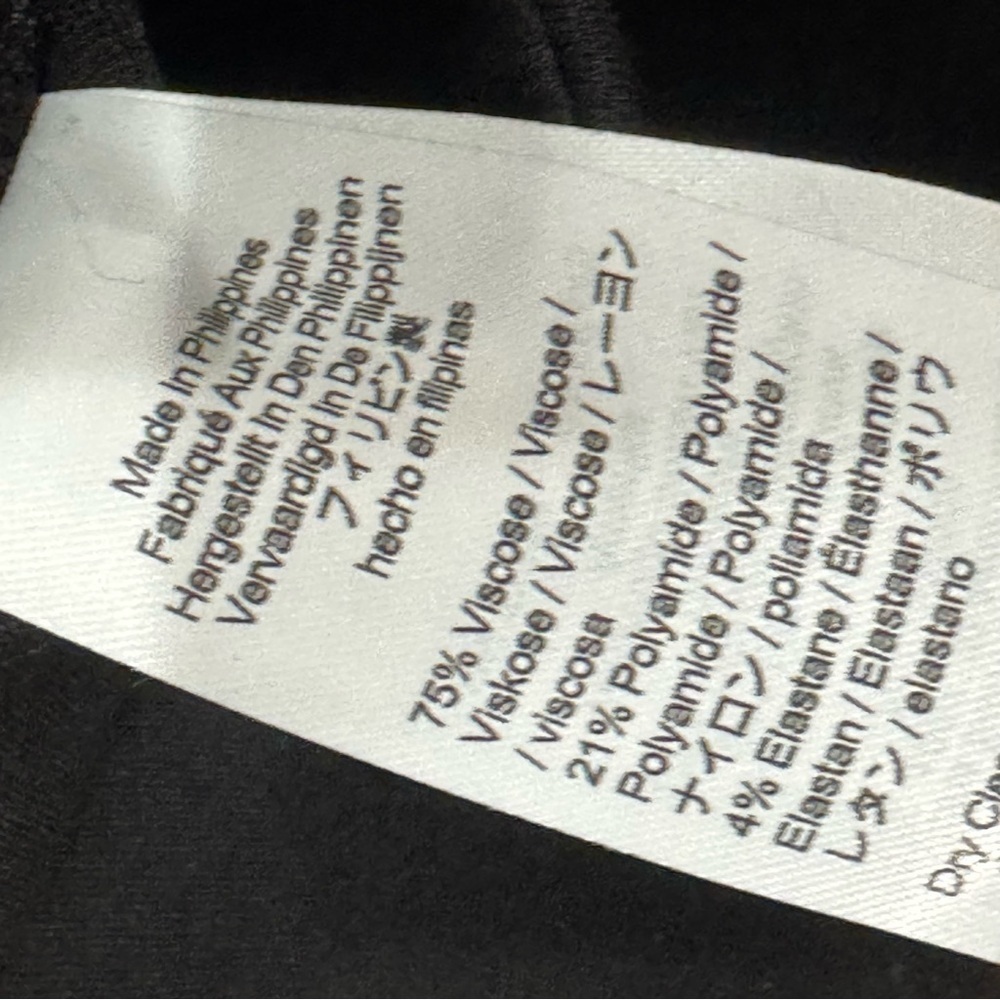 Made In Philippines
Fabriqué Aux Philippines
Hergestellt In Den Philippinen
Vervaardigd In De Filippijnen
フィリピン製
hecho en filipinas
75% Viscose / Viscose /
Viskose / Viscose / レーヨン
/ viscosa
21% Polyamide / Polyamide /
Polyamide / Polyamide /
ナイロン / poliamida
4% Elastane / Élasthanne /
Elastan / Elastaan / ポリウ
レタン / elastano
Dry